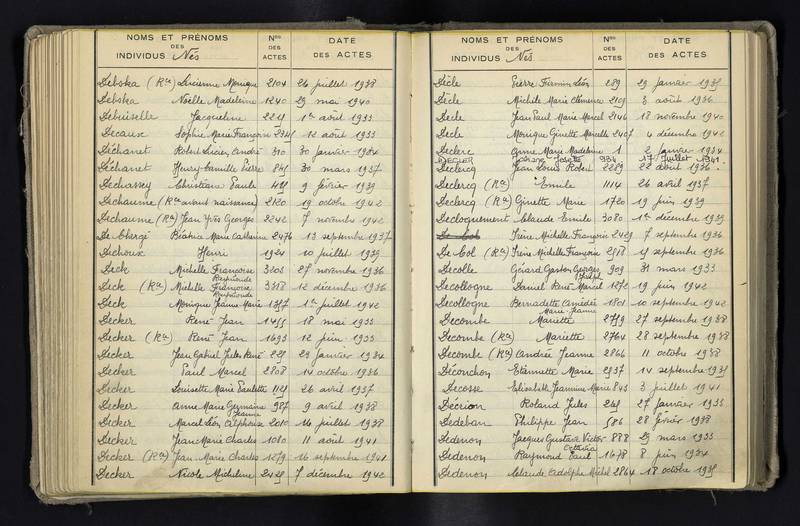 NOMS ET PRÉNOMS DES INDIVIDUS Nés
Nos DES ACTES
DATE DES ACTES
Debska (Ron) Lucienne Monique 2104 26 juillet 1938
Debska Noëlle Madeleine 1240 29 mai 1940
Jacqueline 1er août 1933
Decaux Sophie Marie Françoise 12 août 1933
Déchanet Robert Lucien André 310 30 janvier 1934
Déchanet Henry Camille Pierre 841 30 mars 1937
Dechassey Christiane Paule 9 février 1939
Dechaume (Ron avant naissance) 2120 19 octobre 1942
Dechaume (Ron) Jean Yves Georges 2242 7 novembre 1942
De Chergé Béatrix Marie Catherine 2476 13 septembre 1937
Dechoux Henri 1924 10 juillet 1939
Deck Michelle Françoise Raymonde 3203 27 novembre 1936
Deck (Ron) Michelle Françoise Raymonde 3318 12 décembre 1936
Deck Monique Jeanne Marie 1357 1er juillet 1942
Decker René Jean 1455 18 mai 1933
Decker (Ron) René Jean 1693 12 juin 1933
Decker Jean Gabriel Jules René 229 29 janvier 1934
Decker Paul Marcel 2808 14 octobre 1936
Decker Louisette Marie Paulette 1121 26 avril 1937
Decker Anne Marie Germaine Jeanne 987 9 avril 1938
Decker Marcel Léon Alphonse 2010 16 juillet 1938
Decker Jean Marie Charles 1080 11 août 1941
Decker (Ron) Jean Marie Charles 1279 16 septembre 1941
Decker Nicole Micheline 2429 7 décembre 1942
NOMS ET PRÉNOMS DES INDIVIDUS Nés
Nos DES ACTES
DATE DES ACTES
Dècle Pierre Firmin Léon 289 29 janvier 1935
Dècle Michèle Marie Clémence 2109 3 août 1936
Decle Jean Paul Marie Marcel 2146 18 novembre 1940
Decle Monique Ginette Marcelle 2407 4 décembre 1942
Declerc Anne Marie Madeleine 1 2 janvier 1934
Josette 934 17 juillet 1941
Declercq Jean Louis Robert 2289 22 août 1936
Declercq (Ron) Emile 1114 26 avril 1937
Declercq (Ron) Ginette Marie 1720 19 juin 1939
Decloquement Claude Emile 3080 1er décembre 1939
De Col Irène Michelle Françoise 2429 7 septembre 1936
De Col (Ron) Irène Michelle Françoise 2518 15 septembre 1936
Decolle Gérard Gaston Georges 909 31 mars 1933
Decollogne Daniel René Marcel 1272 19 juin 1942
Decollogne Bernadette Amédée Marie-Jeanne 1801 10 septembre 1942
Decombe Mariette 2759 27 septembre 1938
Decombe (Ron) Mariette 2764 28 septembre 1938
Decombe (Ron) Andrée Jeanne 2866 11 octobre 1938
Déconchon Etiennette Marie 2937 14 septembre 1931
Decosse Elisabeth Jeannine Marie 843 3 juillet 1941
Décrion Roland Jules 27 janvier 1933
Dedeban Philippe Jean 586 28 février 1938
Dedenon Jacques Gustave Victor Octavie 888 29 mars 1933
Dedenon Raymond Paul 1678 8 juin 1934
Dedenon Claude Adolphe Michel 2864 18 octobre 1935